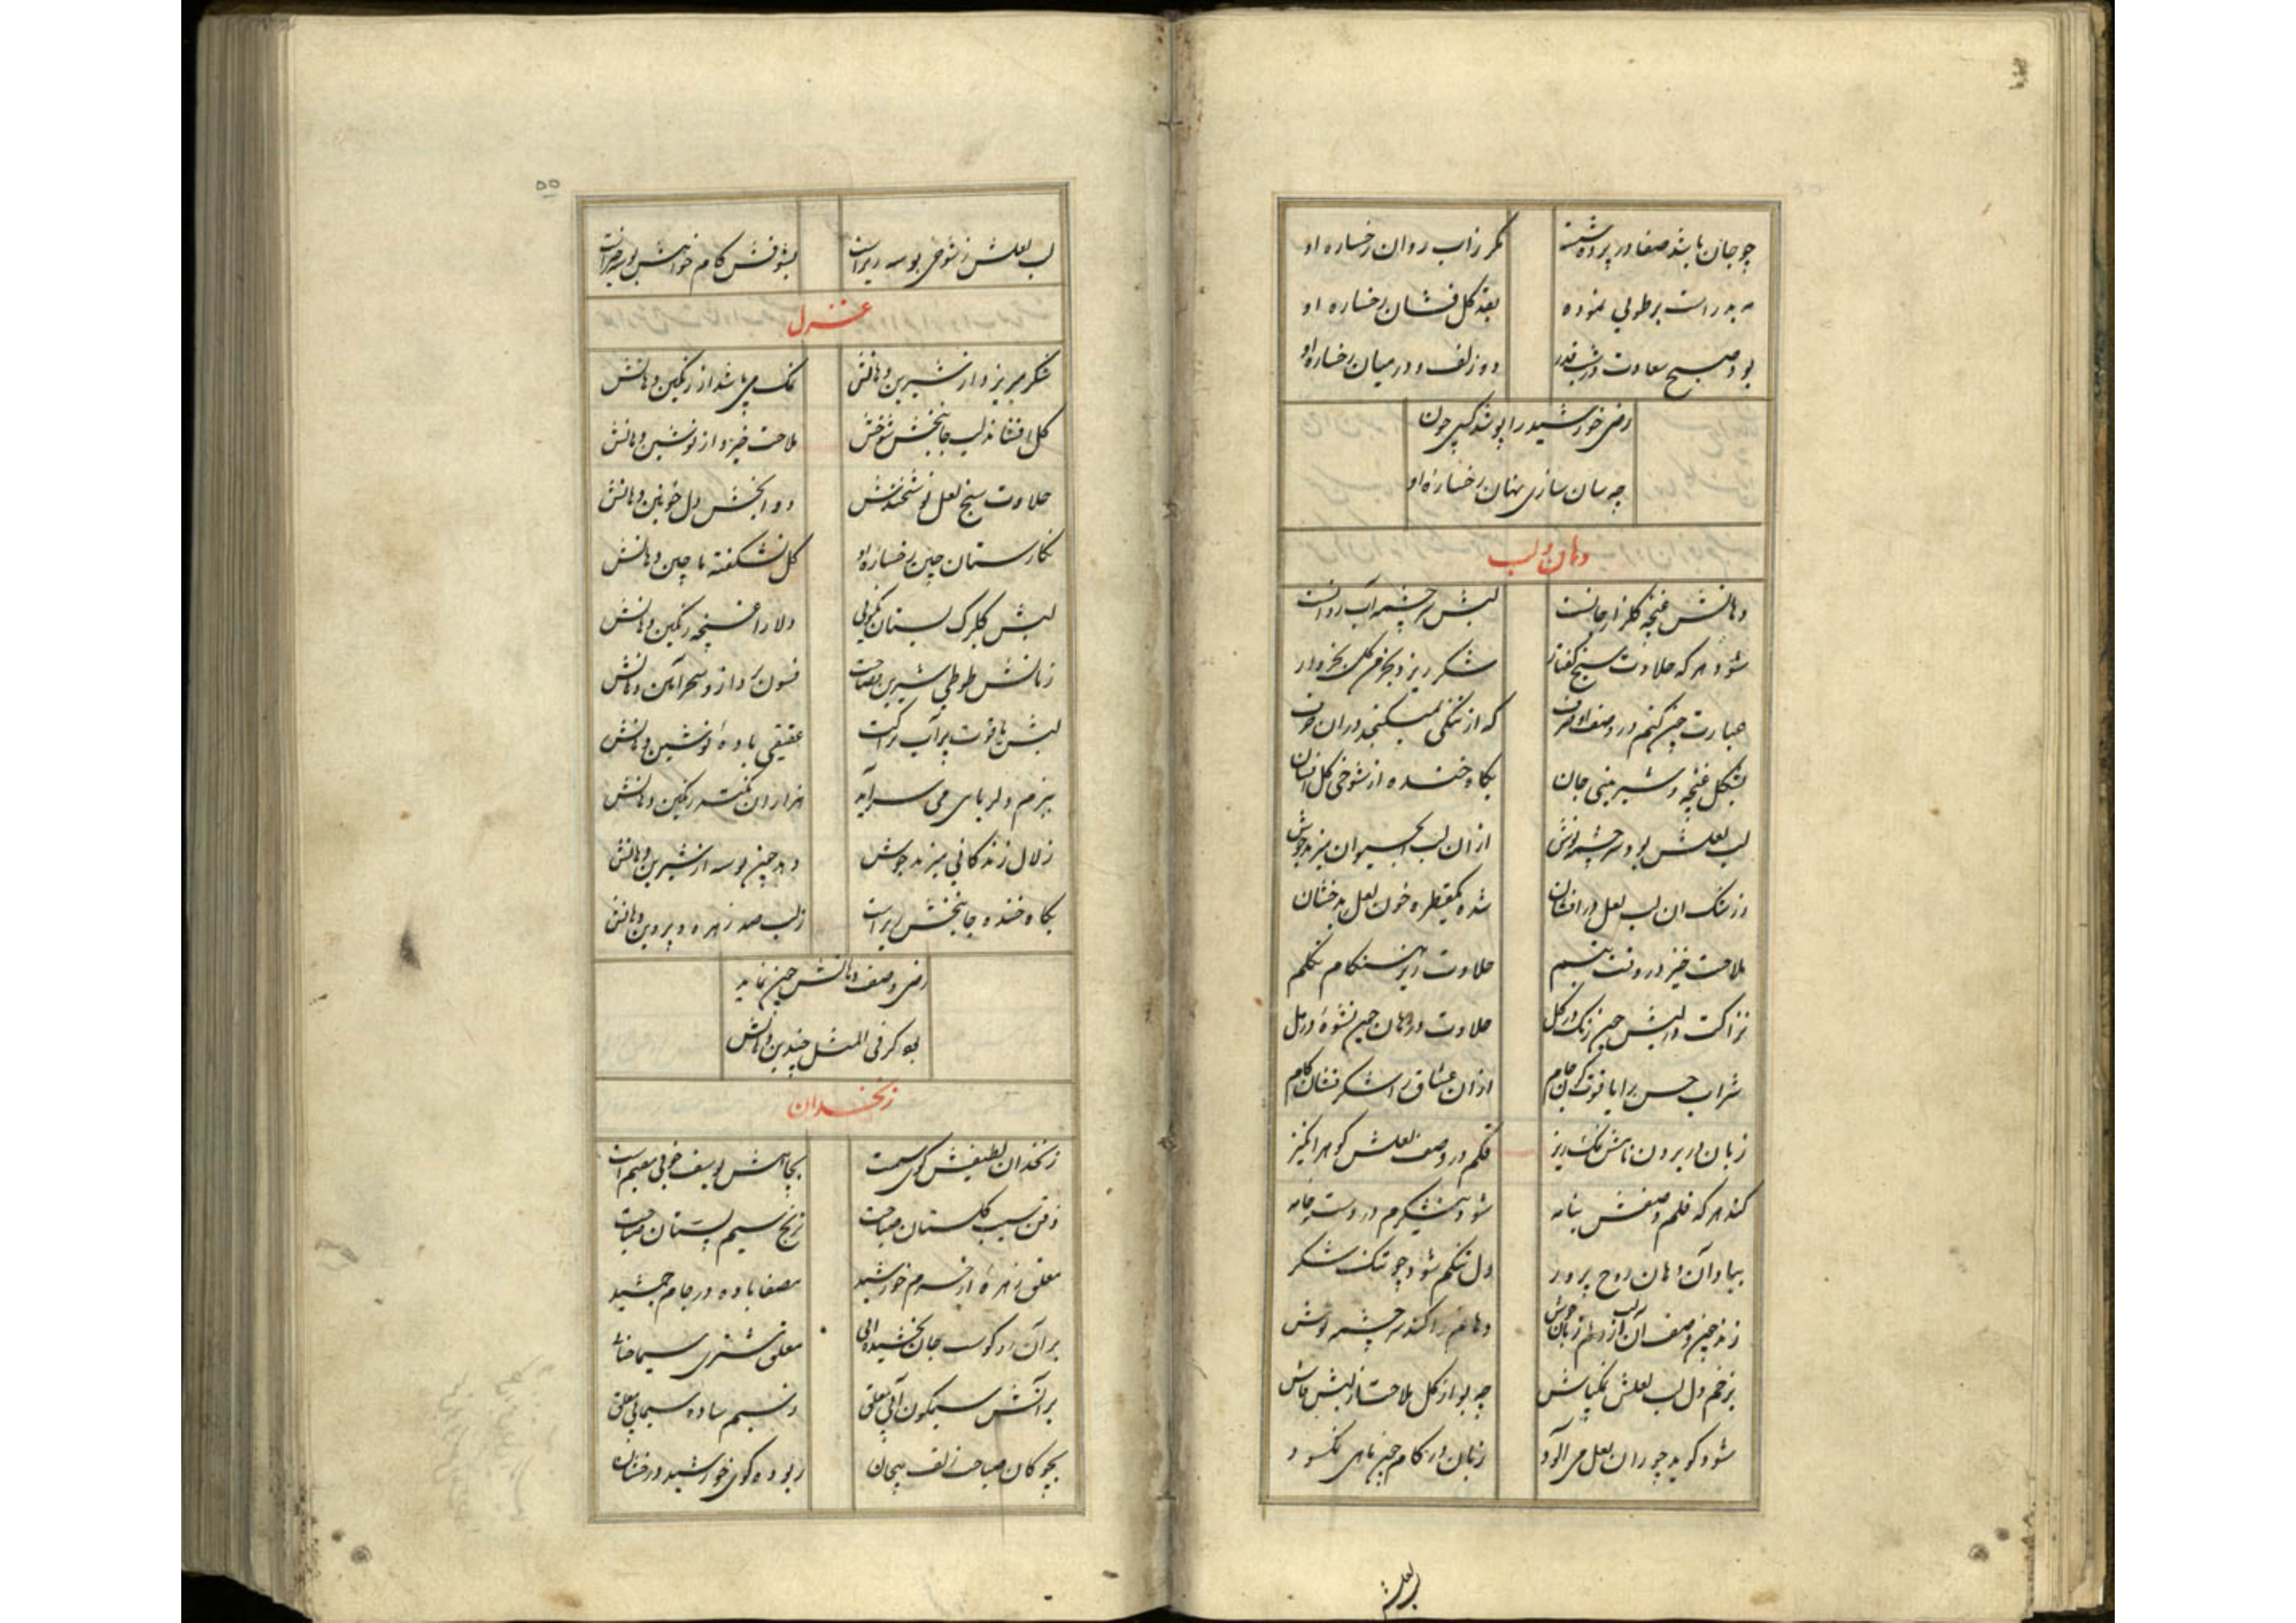 چو جان باشد صفا در پرده شسته مگر زاب روان رخساره او
بطوبی نموده بغد گل فشان رخساره او
بود صبح سعادت در شب قدر دو زلف و در میان رخساره او
رضی خورشید را پوشد کسی چون
چه سان سازی نهان رخسارهٔ او
دهان و لب
دهانش غنچه گلزار جانست لبش سرچشمه آب روانست
شود هر که حلاوت سنج گفتار شکر ریزد
عبارت چین کنم در وصف او من که از تنگی نمیگنجد دران
بشکل غنچه و شیرینی جان بگاه خنده از شوخی گل افشان
لب لعلش بود سرچشمه نوش ازان لب آب حیوان میزند جوش
ز رشک ان لب لعل در افشان شده یکقطره خون لعل بدخشان
ملاحت خیز در وقت تبسم حلاوت ریز هنگام تکلم
نزاکت در لبش چون رنگ در گل حلاوت در دهان چون نشوهٔ در مل
شراب حسن را یاقوت گون جام ازان عشاق را شکر فشان کام
زبان در بردن نامش نمک ریز قلم در وصف لعلش گوهر انگیز
کند هر که قلم وصفش بنامه شود نیشکرم در دست خامه
بیاد آن دهان روح پرور دل تنگم شود چو تنگ شکر
زند چون وصف آن لب از زبان جوش دهانم را کند سرچشمه نوش
بزخم دل لب لعلش نمکپاش چه بو از گل ملاحت از لبش فاش
شود گوید چو زان لعل می آلود زبان در کام چون ماهی نمکسود
لب لعلش
لب لعلش ز شوخی بوسه ریزانست بشوقش کام خواهش بوسه خیزانست
غزل
شکر میریزد از شیرین دهانش نمک می‌پاشد از رنگین دهانش
گل افشاند لب جانبخش شوخش ملاحت خیزد از نوشین دهانش
حلاوت سنج لعل نوشخندش دوا بخش دل خونین دهانش
نگارستان چین رخسارهٔ او گل نشکفته تا چین دهانش
لبش گلبرگ بستان نکویی دلارا غنچه رنگین دهانش
زبانش طوطی شیرین فصاحت فسون پرداز و سحر آئین دهانش
لبش یاقوت پر آب عقیقی بادهٔ نوشین دهانش
ببزم دلربایی می سراید هزاران نکته رنگین دهانش
زلال زندگانی میزند جوش دهد چون بوسه از شیرین دهانش
بگاه خنده جانبخش ریزانست ز لب صد زهره و پروین دهانش
رضی وصف دهانش چون نماید
بود گر فی المثل چندین دهانش
زنخدان
زنخدان لطیفش گوی سیمست بچاهش یوسف خوبی مقیم است
ذقن سیب گلستان صباحت ترنج سیم بستان صباحت
معلق زهرهٔ از جرم خورشید مصفا باده در جام جمشید
معلق مشتری سیما
بر آتش سیمگون آبی معلق ز سیم ساده سیمابی معلق
بچوگان صباحت زلف پیچان ربوده گوی خورشید درخشان